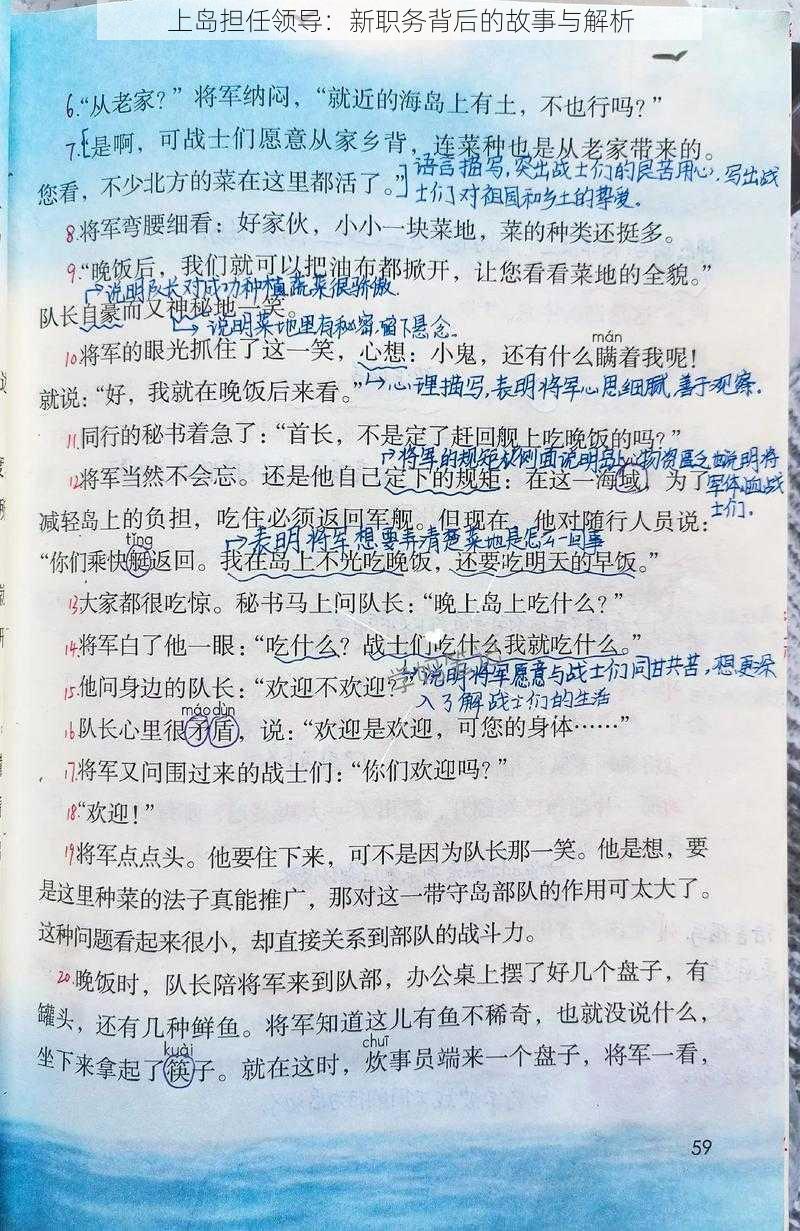 上岛担任领导：新职务背后的故事与解析
6.“从老家？”将军纳闷，“就近的海岛上有土，不也行吗？”
7.[“是啊，可战士们愿意从家乡背，连菜种也是从老家带来的。
您看，不少北方的菜在这里都活了。”]
语言描写，突出战士们的良苦用心，写出战
士们对祖国和乡土的挚爱。
8.将军弯腰细看：好家伙，小小一块菜地，菜的种类还挺多。
9.“晚饭后，我们就可以把油布都掀开，让您看看菜地的全貌。”
→说明队长对成功种植蔬菜很骄傲.
队长自豪而又神秘地一笑。
→说明菜地里有秘密.留下悬念.
mán
10.将军的眼光抓住了这一笑，心想：小鬼，还有什么瞒着我呢！
就说：“好，我就在晚饭后来看。”
→心理描写，表明将军心思细腻，善于观察.
11.同行的秘书着急了：“首长，不是定了赶回舰上吃晚饭的吗？”
→将军的规矩从侧面说明岛上物资匮乏也说明将
军体恤战
士们.
12.将军当然不会忘。还是他自己定下的规矩：在这一海域，为了
减轻岛上的负担，吃住必须返回军舰。但现在，他对随行人员说：
tǐng
→表明将军想要弄清楚菜地是怎么一回事
“你们乘快艇返回。我在岛上不光吃晚饭，还要吃明天的早饭。”
13.大家都很吃惊。秘书马上问队长：“晚上岛上吃什么？”
14.将军白了他一眼：“吃什么？战士们吃什么我就吃什么。”
→说明将军愿意与战士们同甘共苦，想更深
入了解战士们的生活
15.他问身边的队长：“欢迎不欢迎？”
máo dùn
16.队长心里很矛盾，说：“欢迎是欢迎，可您的身体……”
17.将军又问围过来的战士们：“你们欢迎吗？”
18.“欢迎！”
19.将军点点头。他要住下来，可不是因为队长那一笑。他是想，要
是这里种菜的法子真能推广，那对这一带守岛部队的作用可太大了。
这种问题看起来很小，却直接关系到部队的战斗力。
20.晚饭时，队长陪将军来到队部，办公桌上摆了好几个盘子，有
罐头，还有几种鲜鱼。将军知道这儿有鱼不稀奇，也就没说什么，
kuài
chuī
坐下来拿起了筷子。就在这时，炊事员端来一个盘子，将军一看，
59